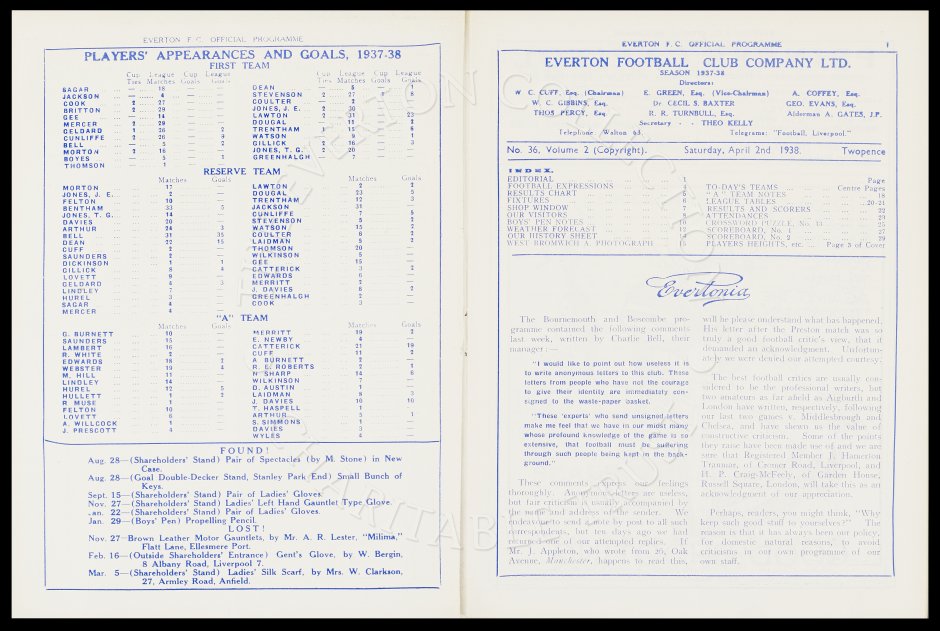 EVERTON F.C. OFFICIAL PROGRAMME
PLAYERS' APPEARANCES AND GOALS, 1937-38
FIRST TEAM
Cup Ties League Matches Cup Goals League Goals
SAGAR — 18 — —
JACKSON — 4 — —
COOK 2 27 — —
BRITTON 2 29 — —
GEE — 14 — —
MERCER 2 29 — —
GELDARD 1 26
CUNLIFFE 2 26
BELL — 5
MORTON 2 16 — —
BOYES — 5 — 1
THOMSON
Cup Ties League Matches Cup Goals League Goals
DEAN — 5
STEVENSON 2 27
COULTER — 2
JONES, J. E. 2 30
LAWTON 2 31 — 23
DOUGAL — 11 — 2
TRENTHAM
WATSON
GILLICK 2 16 — 3
JONES, T. G. 2 20 — —
GREENHALGH — 7 — —
RESERVE TEAM
Matches Goals
MORTON 17 —
JONES, J. E. 2 —
FELTON 10 —
BENTHAM 33 5
JONES, T. G. 14 —
DAVIES 20 —
ARTHUR 24 3
BELL 31 35
DEAN 22 15
CUFF 2 —
SAUNDERS 2 —
DICKINSON 1 1
GILLICK 8 4
LOVETT 9 —
GELDARD 4 3
LINDLEY 7 —
HUREL 3 —
SAGAR 4 —
MERCER 4 —
Matches Goals
LAWTON 2 2
DOUGAL 23 5
TRENTHAM 12 3
JACKSON 31 —
CUNLIFFE 7 5
STEVENSON 5 2
WATSON 15 7
COULTER 6 2
LAIDMAN 5 2
THOMSON 20 —
WILKINSON 5 —
GEE 15 —
CATTERICK 3 2
EDWARDS 6 —
MERRITT 2 —
J. DAVIES 8 2
GREENHALGH 2 —
COOK 3 —
"A" TEAM
Matches Goals
G. BURNETT 10 —
SAUNDERS 15 —
LAMBERT 16 —
R. WHITE 2 —
EDWARDS 18 2
WEBSTER 19 4
M. HILL 11 —
LINDLEY 14 —
HUREL 12 5
HULLETT 1 2
R MUSE 1 —
FELTON 10 —
LOVETT 6 —
A. WILLCOCK 1 —
J. PRESCOTT 4 —
Matches Goals
MERRITT 19 2
E. NEWBY 4 —
CATTERICK 21 19
CUFF 11 2
A BURNETT 2 2
R. E. ROBERTS 2 1
N SHARP 14 6
WILKINSON 7 —
D. AUSTIN 1 —
LAIDMAN 8 3
J. DAVIES 10 10
T. HASPELL 1 —
ARTHUR 3 1
S. SIMMONS 1 —
DAVIES 3 —
WYLES 4 —
FOUND!
Aug. 28—(Shareholders' Stand) Pair of Spectacles (by M. Stone) in New
Case.
Aug. 28—(Goal Double-Decker Stand, Stanley Park End) Small Bunch of
Keys.
Sept. 15—(Shareholders' Stand) Pair of Ladies' Gloves.
Nov. 27—(Shareholders' Stand) Ladies' Left Hand Gauntlet Type Glove.
Jan. 22—(Shareholders' Stand) Pair of Ladies' Gloves.
Jan. 29—(Boys' Pen) Propelling Pencil.
LOST!
Nov. 27—Brown Leather Motor Gauntlets, by Mr. A. R. Lester, "Milima,"
Flatt Lane, Ellesmere Port.
Feb. 16—(Outside Shareholders' Entrance) Gent's Glove, by W. Bergin,
8 Albany Road, Liverpool 7.
Mar. 5—(Shareholders' Stand) Ladies' Silk Scarf, by Mrs. W. Clarkson,
27, Armley Road, Anfield.
EVERTON F.C. OFFICIAL PROGRAMME 1
EVERTON FOOTBALL CLUB COMPANY LTD.
SEASON 1937-38
Directors:
W. C. CUFF, Esq. (Chairman) E. GREEN, Esq. (Vice-Chairman) A. COFFEY, Esq.
W. C. GIBBINS, Esq. Dr CECIL S. BAXTER GEO. EVANS, Esq.
THOS. PERCY, Esq. R. R. TURNBULL, Esq. Alderman A. GATES, J.P.
Secretary - - THEO KELLY
Telephone: Walton 63. Telegrams: "Football, Liverpool."
No. 36, Volume 2 (Copyright). Saturday, April 2nd 1938. Twopence
INDEX.
Page
EDITORIAL 1
FOOTBALL EXPRESSIONS
RESULTS CHART
FIXTURES
SHOP WINDOW
OUR VISITORS
BOYS' PEN NOTES
WEATHER FORECAST
OUR HISTORY SHEET
WEST BROMWICH A. PHOTOGRAPH
Page
TO-DAY'S TEAMS Centre Pages
"A" TEAM NOTES
LEAGUE TABLES 20-21
RESULTS AND SCORERS 22
ATTENDANCES
CROSSWORD PUZZLE, No. 13
SCOREBOARD, No. 1
SCOREBOARD, No. 2
PLAYERS HEIGHTS, etc. Page 3 of Cover
Evertonia
The Bournemouth and Boscombe pro-
gramme contained the following comments
last week, written by Charlie Bell, their
manager:—
"I would like to point out how useless it is
to write anonymous letters to this club. These
letters from people who have not the courage
to give their identity are immediately con-
signed to the waste-paper basket.
"These 'experts' who send unsigned letters
make me feel that we have in our midst many
whose profound knowledge of the game is so
extensive, that football must be suffering
through such people being kept in the back-
ground."
These comments express our feelings
thoroughly. Anonymous letters are useless,
but fair criticism is usually accompanied by
the name and address of the sender. We
endeavour to send a note by post to all such
correspondents, but ten days ago we had
returned one of our attempted replies. If
Mr. J. Appleton, who wrote from 26, Oak
Avenue, Manchester, happens to read this,
will he please understand what has happened.
His letter after the Preston match was so
truly a good football critic's view, that it
demanded an acknowledgment. Unfortun-
ately we were denied our attempted courtesy.
The best football critics are usually con-
sidered to be the professional writers, but
two amateurs as far afield as Aigburth and
London have written, respectively, following
our last two games v. Middlesbrough and
Chelsea, and have shewn us the value of
constructive criticism. Some of the points
they raise have been made use of and we are
sure that Registered Member J. Hamerton
Trannar, of Cromer Road, Liverpool, and
H. P. Craig-McFeely, of Garden House,
Russell Square, London, will take this as an
acknowledgment of our appreciation.
Perhaps, readers, you might think, "Why
keep such good stuff to yourselves?" The
reason is that it has always been our policy,
for domestic natural reasons, to avoid
criticisms in our own programme of our
own staff.